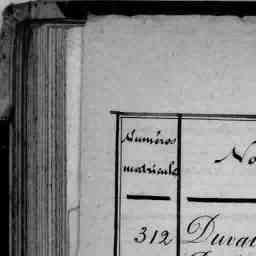 Numéros
matricule
No
312 Duva